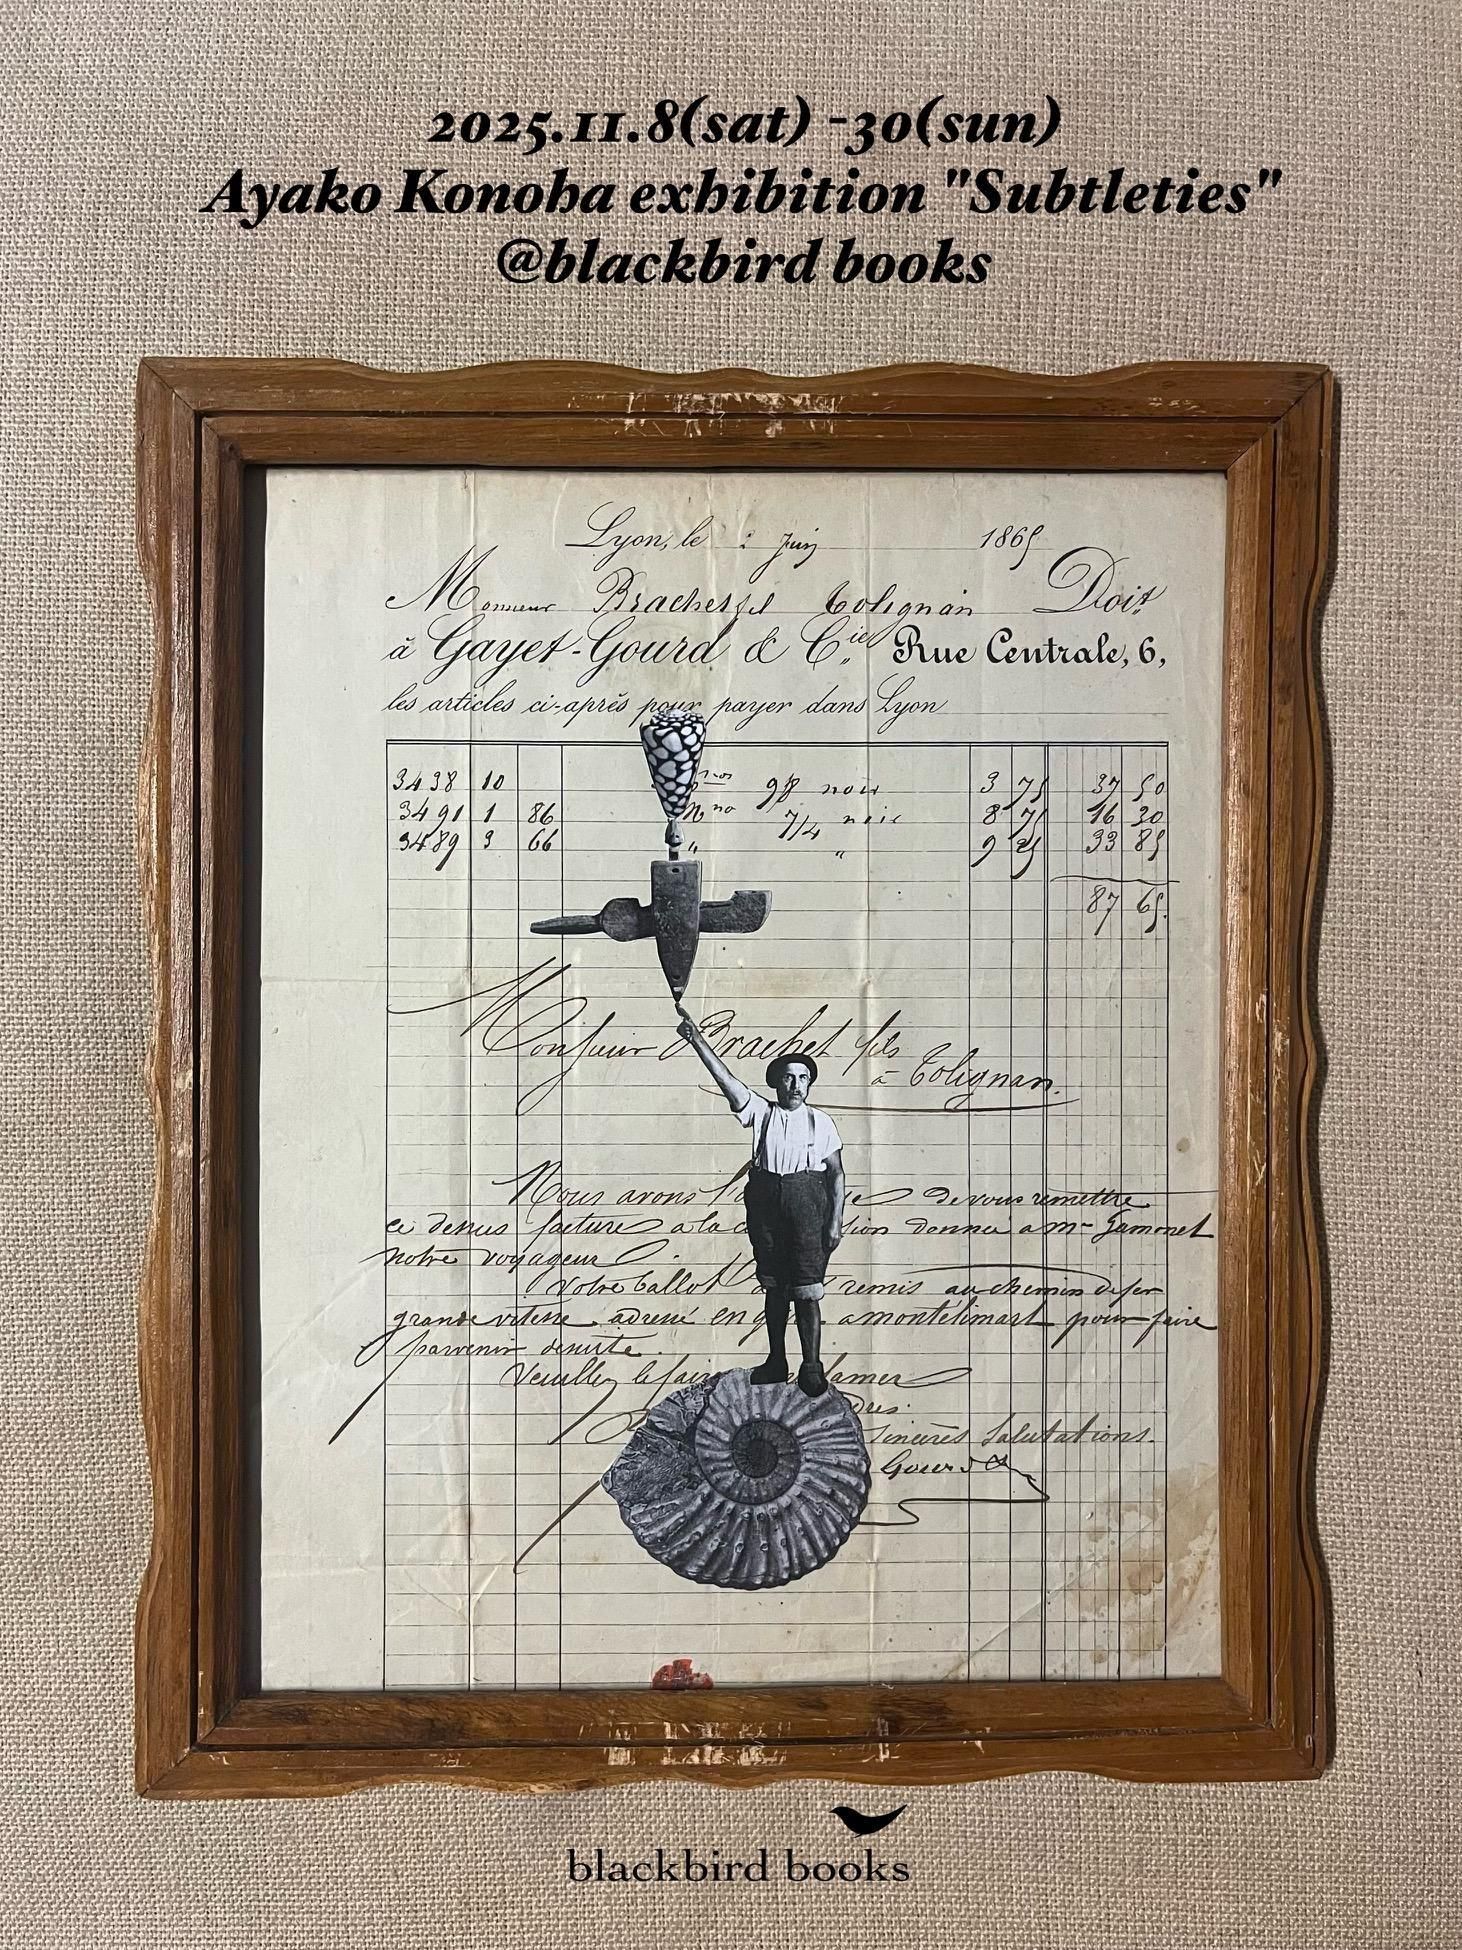 2025.11.8(sat) -30(sun)
Ayako Konoha exhibition "Subtleties"
@blackbird books
Lyon, le 2 Juin 1865
Monsieur Brachet fils Tolignan Doit
à Gayet-Gourd & Cie Rue Centrale, 6,
les articles ci-après pour payer dans Lyon
3438 10 98 noir 3 75 37 50
3491 1 86 7/4 noir 8 75 16 30
3489 3 66 " " 9 25 33 85
87 65
Monsieur Brachet fils
à Tolignan
Nous avons de vous remettre
ce dessus facture a la donnée a Mr Gamonet
notre voyageur
Votre ballot remis au chemin de fer
grande vitesse adressé en a montélimart pour faire
parvenir
Veuillez le faire
sincères salutations.
Gourd
blackbird books